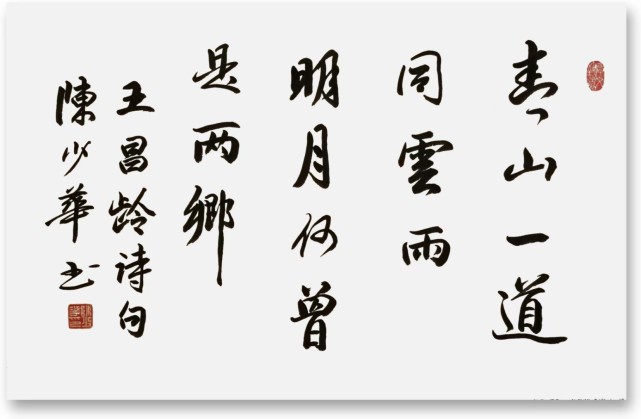 青山一道
同雲雨
明月何曾
是两鄉
王昌龄诗句
陳少華书